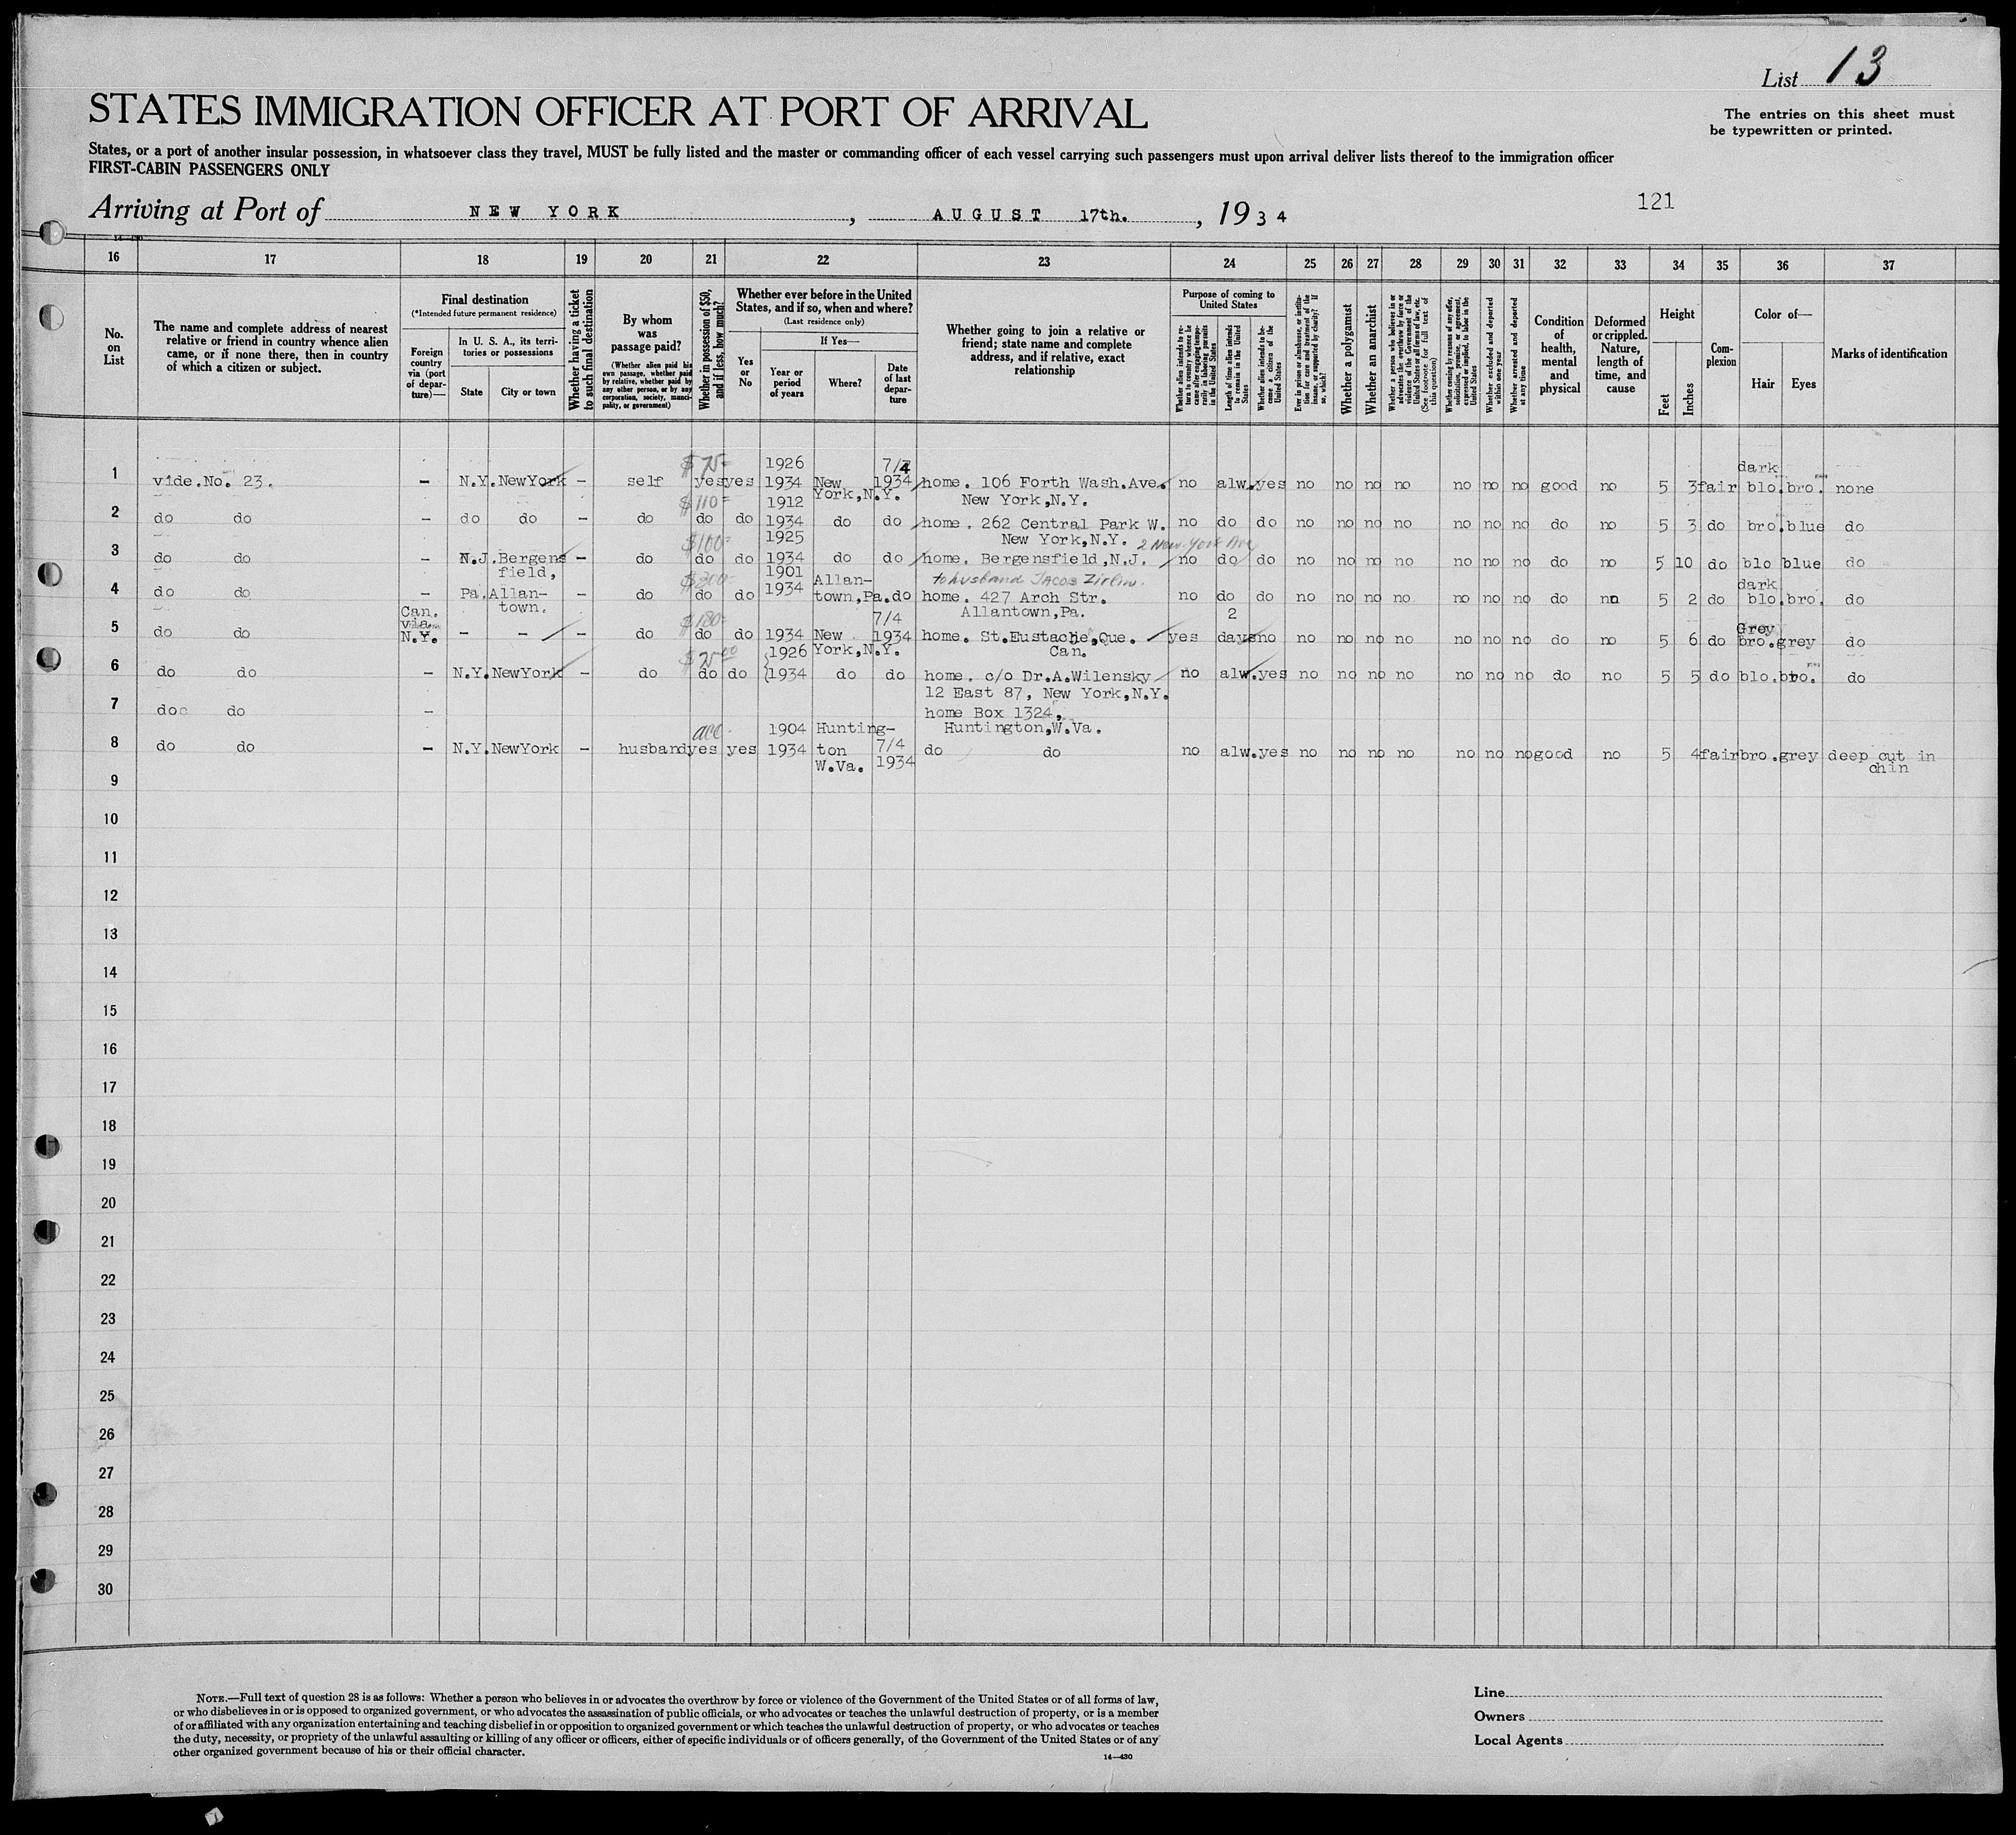 List 13
STATES IMMIGRATION OFFICER AT PORT OF ARRIVAL
The entries on this sheet must
be typewritten or printed.
States, or a port of another insular possession, in whatsoever class they travel, MUST be fully listed and the master or commanding officer of each vessel carrying such passengers must upon arrival deliver lists thereof to the immigration officer
FIRST-CABIN PASSENGERS ONLY
Arriving at Port of NEW YORK, AUGUST 17th., 1934
121
16 17 18 19 20 21 22 23 24 25 26 27 28 29 30 31 32 33 34 35 36 37
No. on List
The name and complete address of nearest
relative or friend in country whence alien
came, or if none there, then in country
of which a citizen or subject.
Final destination
(*Intended future permanent residence)
Foreign
country
via (port
of depar-
ture)—
In U. S. A., its terri-
tories or possessions
State
City or town
Whether having a ticket
to such final destination
By whom
was
passage paid?
(Whether alien paid his
own passage, whether paid
by relative, whether paid by
any other person, or by any
corporation, society, munici-
pality, or government)
Whether in possession of $50,
and if less, how much?
Whether ever before in the United
States, and if so, when and where?
(Last residence only)
Yes
or
No
If Yes—
Year or
period
of years
Where?
Date
of last
depar-
ture
Whether going to join a relative or
friend; state name and complete
address, and if relative, exact
relationship
Purpose of coming to
United States
Whether alien intends to re-
turn to country whence he
came after engaging tempo-
rarily in laboring pursuits
in the United States
Length of time alien intends
to remain in the United
States
Whether alien intends to be-
come a citizen of the
United States
Ever in prison or almshouse, or institu-
tion for care and treatment of the
insane, or supported by charity? If
so, which?
Whether a polygamist
Whether an anarchist
Whether a person who believes in or
advocates the overthrow by force or
violence of the Government of the
United States or all forms of law, etc.
(See footnote for full text of
this question)
Whether coming by reasons of any offer,
solicitation, promise, or agreement,
expressed or implied, to labor in the
United States
Whether excluded and deported
within one year
Whether arrested and deported
at any time
Condition
of
health,
mental
and
physical
Deformed
or crippled.
Nature,
length of
time, and
cause
Height
Feet
Inches
Com-
plexion
Color of—
Hair
Eyes
Marks of identification
$75- 1926 7/4 dark
1 vide.No. 23. – N.Y. NewYork – self yes yes 1934 New 1934 home. 106 Forth Wash.Ave. no alw. yes no no no no no no no good no 5 3 fair blo. bro. none
$110= 1912 York,N.Y. New York,N.Y.
2 do do – do do – do do do 1934 do do home. 262 Central Park W. no do do no no no no no no no do no 5 3 do bro. blue do
$100= 1925 New York,N.Y. 2 New-York Ave
3 do do – N.J. Bergens – do do do 1934 do do home. Bergensfield,N.J. no do do no no no no no no no do no 5 10 do blo blue do
field, $200= 1901 Allan- to husband Jacob Zirlin. dark
4 do do – Pa. Allan- – do do do 1934 town,Pa. do home. 427 Arch Str. no do do no no no no no no no do no 5 2 do blo. bro. do
town. Allantown,Pa.
Can.
via $180= 7/4 2 Grey
5 do do N.Y. – – – do do do 1934 New 1934 home. St.Eustache,Que. yes days no no no no no no no no do no 5 6 do bro. grey do
$25.00 1926 York,N.Y. Can.
6 do do – N.Y. NewYork – do do do 1934 do do home. c/o Dr.A.Wilensky no alw. yes no no no no no no no do no 5 5 do blo. bro. do
12 East 87, New York,N.Y.
7 do do – home Box 1324,
acc. 1904 Hunting- Huntington,W.Va.
8 do do – N.Y. NewYork – husband yes yes 1934 ton 7/4 do do no alw. yes no no no no no no no good no 5 4 fair bro. grey deep cut in
W.Va. 1934 chin
9
10
11
12
13
14
15
16
17
18
19
20
21
22
23
24
25
26
27
28
29
30
NOTE.—Full text of question 28 is as follows: Whether a person who believes in or advocates the overthrow by force or violence of the Government of the United States or of all forms of law,
or who disbelieves in or is opposed to organized government, or who advocates the assassination of public officials, or who advocates or teaches the unlawful destruction of property, or is a member
of or affiliated with any organization entertaining and teaching disbelief in or opposition to organized government or which teaches the unlawful destruction of property, or who advocates or teaches
the duty, necessity, or propriety of the unlawful assaulting or killing of any officer or officers, either of specific individuals or of officers generally, of the Government of the United States or of any
other organized government because of his or their official character.
14—430
Line
Owners
Local Agents